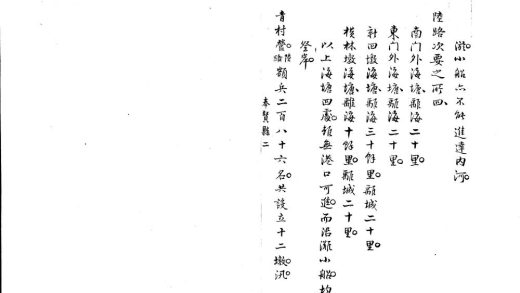 漲小船亦不能進達内河
陸路次要之所四
南门外海塘離海二十里
東门外海塘離海二十里
社四墩海塘離海三十餘里離城二十里
横林墩海塘離海十餘里離城二十里
以上海塘四處頻無港口可進而沿灘小船均
登岸
青村營陸續額兵二百八十六名共設立十二墩汛
奉賢縣二